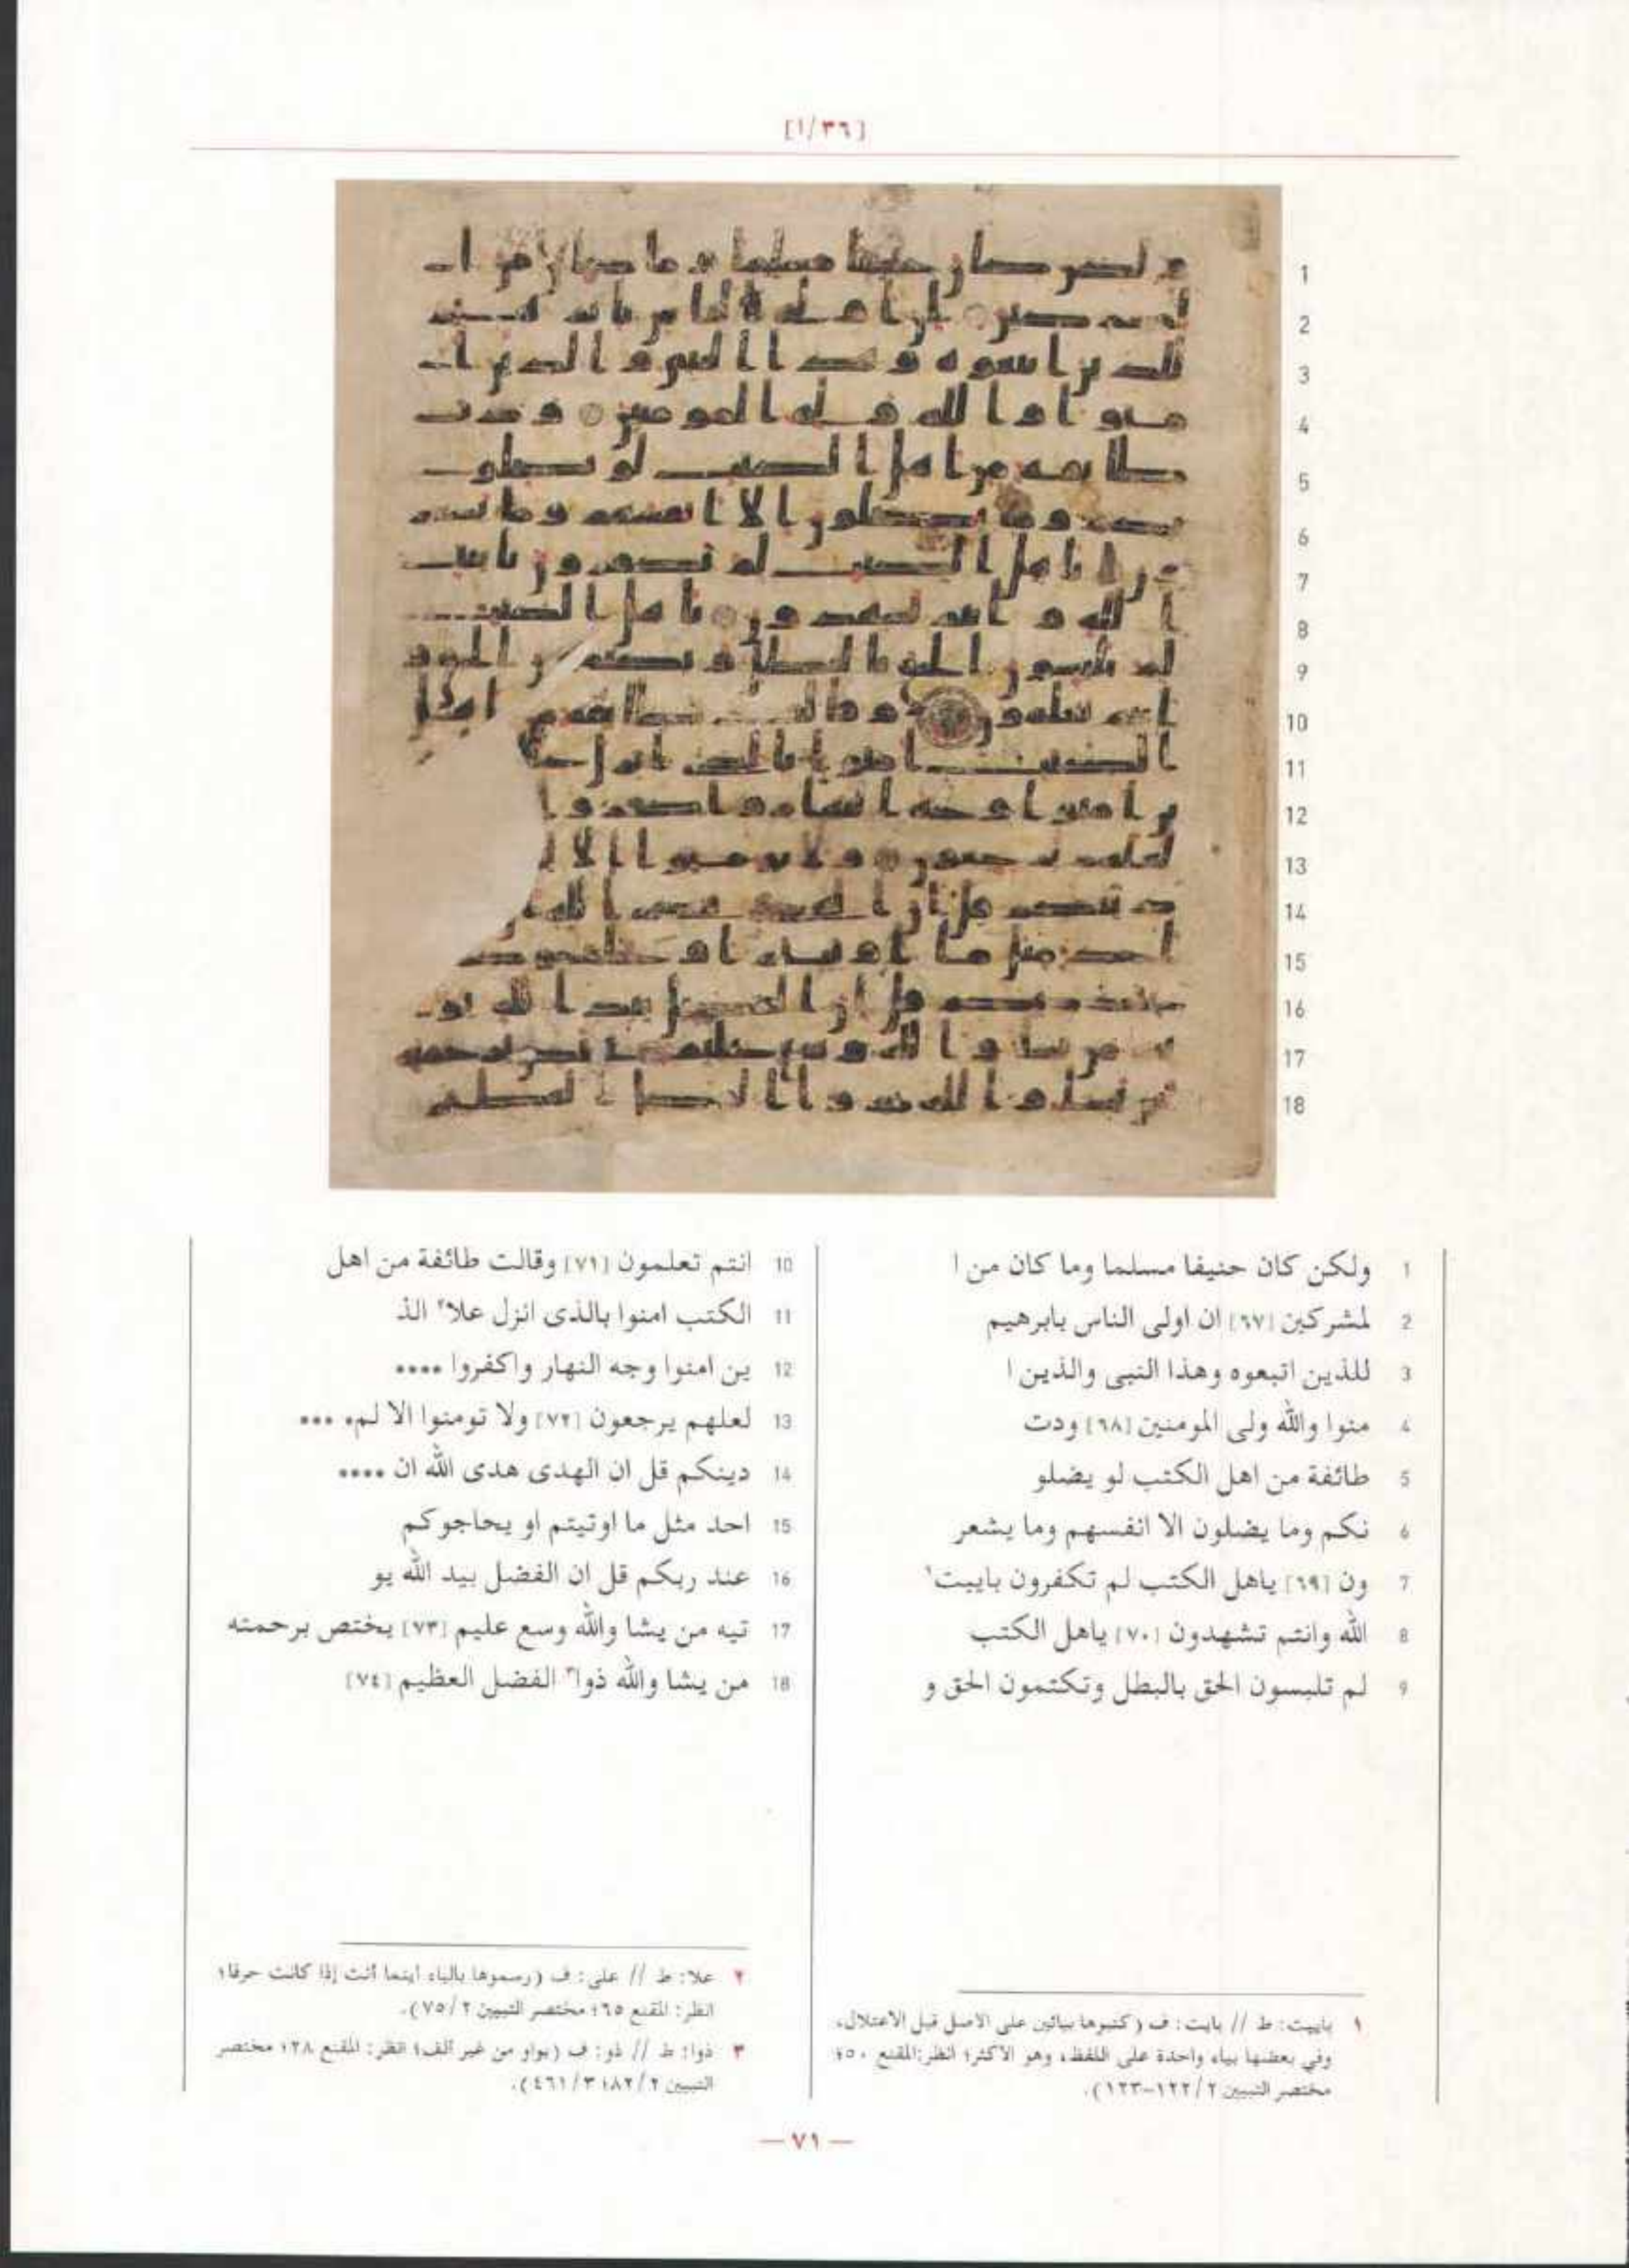 [٣٦/ا]
1 ولكن كان حنيفا مسلما وما كان من ا
2 لمشركين [٦٧] ان اولى الناس بابرهيم
3 للذين اتبعوه وهذا النبى والذين ا
4 منوا والله ولى المومنين [٦٨] ودت
5 طائفة من اهل الكتب لو يضلو
6 نكم وما يضلون الا انفسهم وما يشعر
7 ون [٦٩] ياهل الكتب لم تكفرون باييت١
8 الله وانتم تشهدون [٧٠] ياهل الكتب
9 لم تلبسون الحق بالبطل وتكتمون الحق و
10 انتم تعلمون [٧١] وقالت طائفة من اهل
11 الكتب امنوا بالذى انزل علا٢ الذ
12 ين امنوا وجه النهار واكفروا ••••
13 لعلهم يرجعون [٧٢] ولا تومنوا الا لم• •••
14 دينكم قل ان الهدى هدى الله ان ••••
15 احد مثل ما اوتيتم او يحاجوكم
16 عند ربكم قل ان الفضل بيد الله يو
17 تيه من يشا والله وسع عليم [٧٣] يختص برحمته
18 من يشا والله ذوا٣ الفضل العظيم [٧٤]
١ باييت: ط // بايت: ف (كتبوها بيائين على الاصل قبل الاعتلال،
وفي بعضها بياء واحدة على اللفظ، وهو الاكثر؛ انظر: المقنع ٥٠؛
مختصر التبيين ٢/ ١٢٢-١٢٣).
٢ علا: ط // على: ف (رسموها بالياء اينما أتت إذا كانت حرفا؛
انظر: المقنع ٦٥؛ مختصر التبيين ٢/ ٧٥).
٣ ذوا: ط // ذو: ف (بواو من غير ألف؛ انظر: المقنع ٢٨؛ مختصر
التبيين ٢/ ٨٢؛ ٣/ ٤٦١).
— ٧١ —